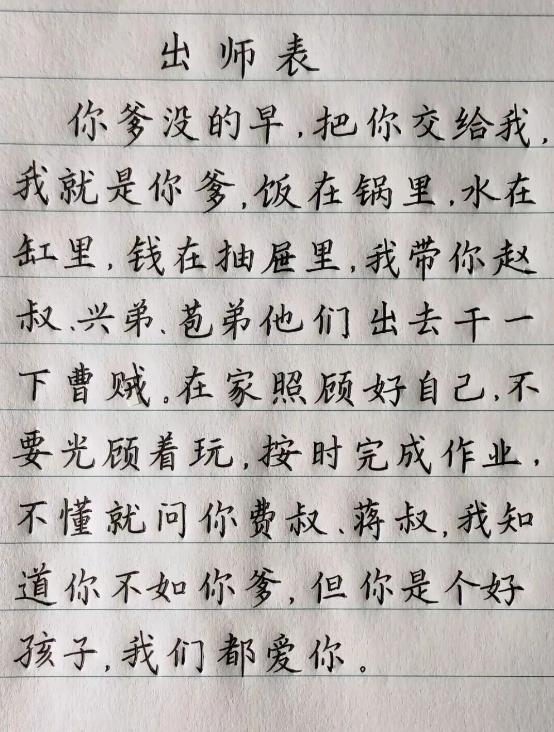 出师表
你爹没的早,把你交给我,
我就是你爹,饭在锅里,水在
缸里,钱在抽屉里,我带你赵
叔、兴弟、苞弟他们出去干一
下曹贼。在家照顾好自己,不
要光顾着玩,按时完成作业,
不懂就问你费叔、蒋叔,我知
道你不如你爹,但你是个好
孩子,我们都爱你。